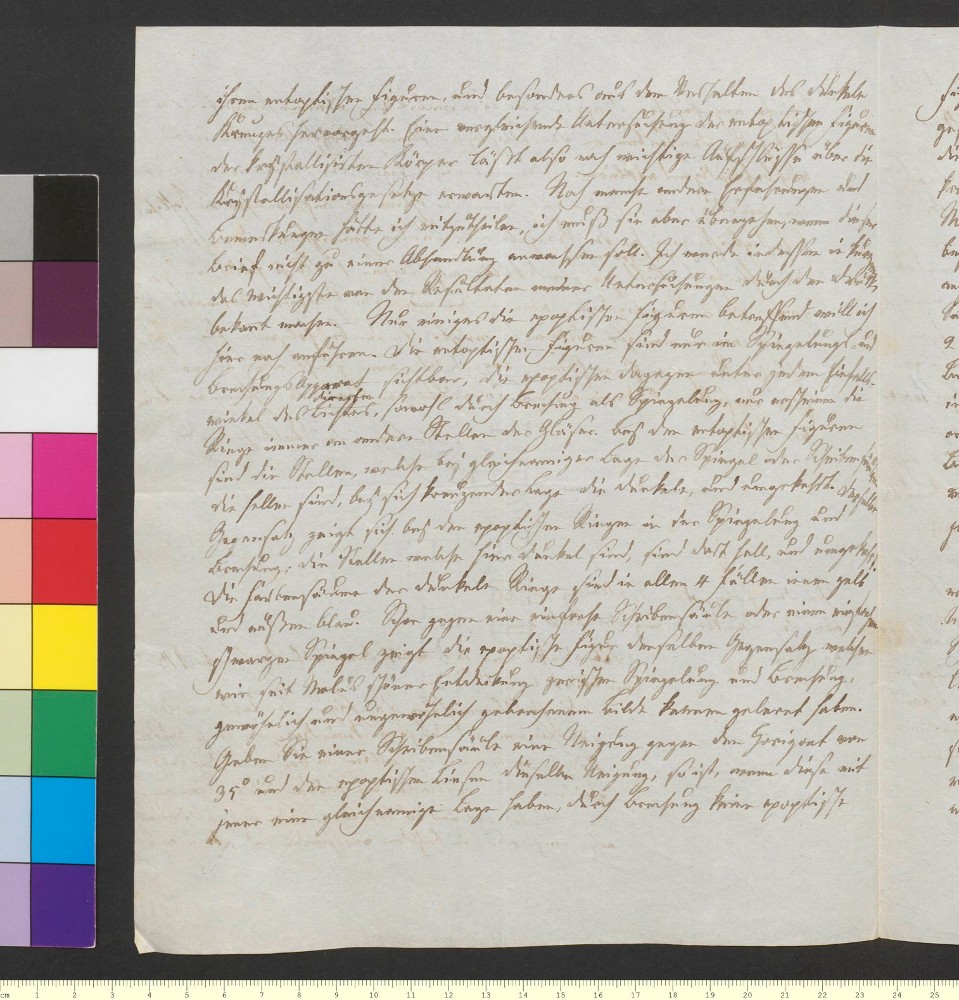 ihren entoptischen Figuren, und besonders aus dem Verhalten des dunkeln
Kreuzes hervorgeht. Eine vergleichende Untersuchung der entoptischen Figuren
der krystallisirten Körper läßt also noch wichtige Aufschlüsse über die
Krystallisationsgesetze erwarten. Noch manche andere Erfahrungen und
Bemerkungen hätte ich mitzutheilen, ich muß sie aber übergehen, wenn dieser
Brief nicht zu einer Abhandlung anwachsen soll. Ich werde indessen in kurzem
das Wichtigste von den Resultaten meiner Untersuchungen durch den Druck
bekant machen. Nur einiges die epoptischen Figuren betreffend will ich
hier noch anführen. Die entoptischen Figuren sind nur im Spiegelungs- und
Brechungs Apparat sichtbar, die epoptischen dagegen unter jedem Einfalls-
winkel des directen Lichtes, sowohl durch Brechung als Spiegelung, nur erscheinen die
Ringe immer an andern Stellen der Gläser. Bei den entoptischen Figuren
sind die Stellen, welche bey gleichnamiger Lage der Spiegel oder Scheibensäulen
die hellen sind, bey sich kreuzender Lage die dunkeln, und umgekehrt. Denselben
Gegensatz zeigt sich bei den epoptischen Ringen in der Spiegelung und
Brechung; die Stellen welche hier dunkel sind, sind dort hell, und umgekehrt.
Die Farbensäume der dunkeln Ringe sind in allen 4 Fällen innen gelb
und außen blau. Schon gegen eine einfache Scheibensäule oder einen einfachen
schwarzen Spiegel zeigt die epoptische Figur denselben Gegensatz welchen
wir seit Malus schöner Entdeckung zwischen Spiegelung und Brechung,
gewöhnlich und ungewöhnlich gebrochenem Bilde kennen gelernt haben.
Geben Sie einer Scheibensäule eine Neigung gegen den Horizont von
35° und den epoptischen Linsen dieselbe Neigung, so ist, wenn diese mit
jener eine gleichnamige Lage haben, durch Brechung keine epoptische